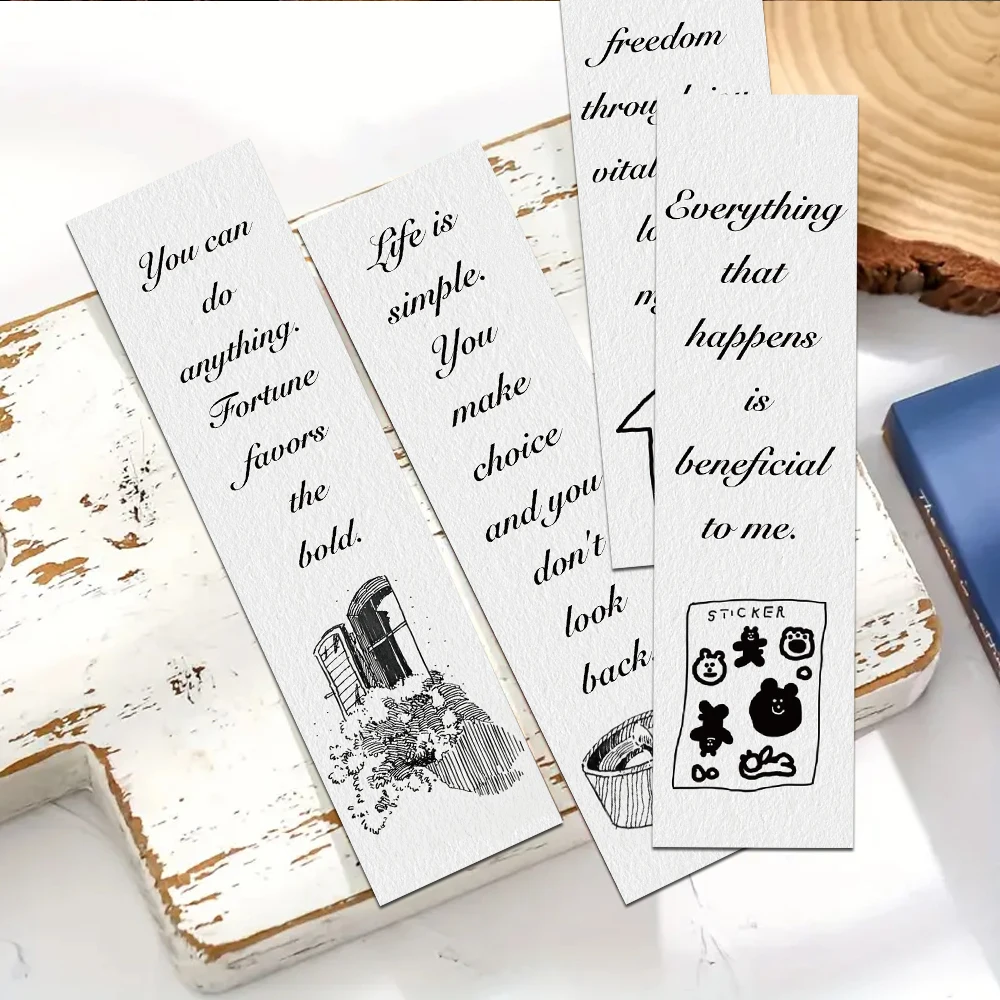 You can
do
anything.
Fortune
favors
the
bold.
Life is
simple.
You
make
choice
and you
don't
look
back.
freedom
Everything
that
happens
is
beneficial
to me.
STICKER